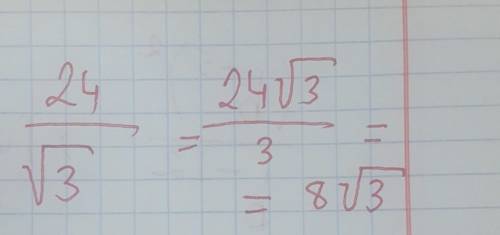 24/√3 = 24√3/3 =
= 8√3